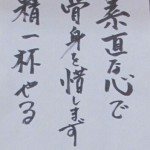 素直な心で
骨身を惜します
精一杯やる